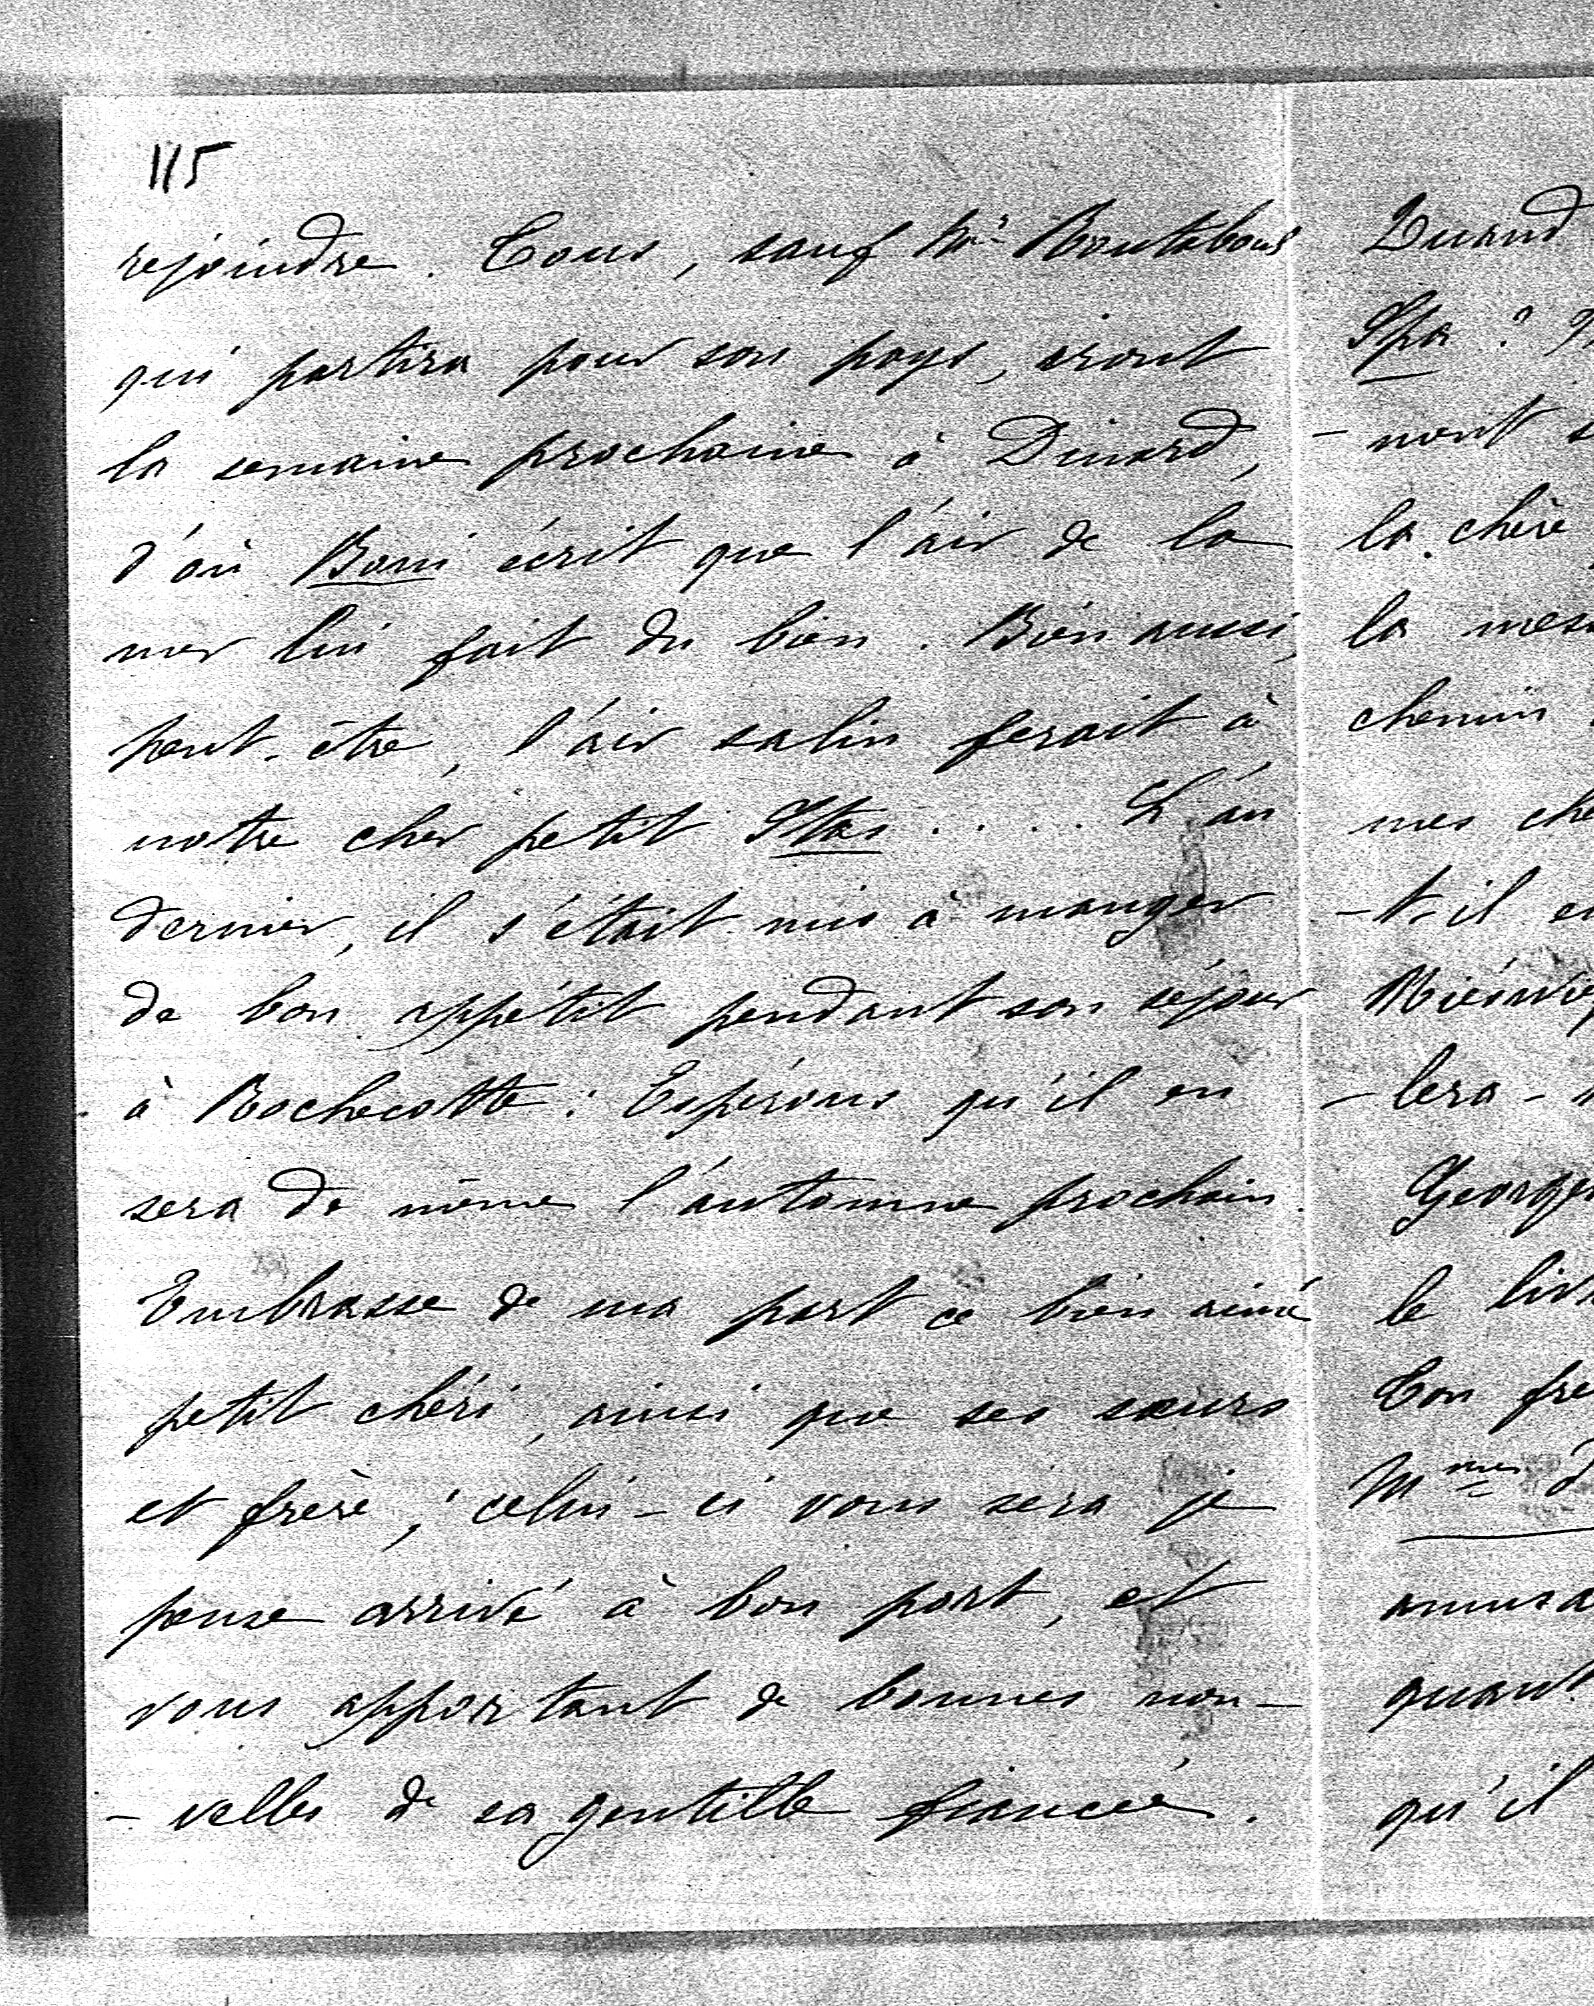 115
rejoindre. Tous, sauf Mr. Boutabour
qui partira pour son pays, iront
la semaine prochaine à Dinard,
d'où Boni écrit que l'air de la
mer lui fait du bien. Bien aussi,
peut-être, l'air salin ferait à
notre cher petit Stas..... L'an
dernier, il s'était mis à manger
de bon appétit pendant son séjour
à Rochecotte: Espérons qu'il en
sera de même l'automne prochain.
Embrasse de ma part ce bien aimé
petit chéri, ainsi que ses sœurs
et frère; celui-ci vous sera je
pense arrivé à bon port, et
vous apportant de bonnes nou-
-velles de sa gentille fiancée.
Quand
Spa?
-nent
la chère
la
chemin
mes
-t-il
-lera-
George
le
Ton
Mmes
quant
qu'il